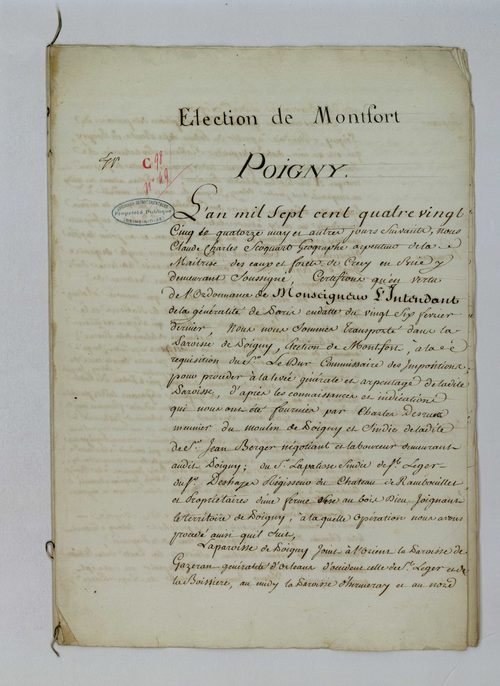 Election de Montfort
C 98
n° 69
POIGNY.
Propriété Publique
L'an mil sept cent quatre vingt
Cinq le quatorze may et autres jours suivants, nous
Claude Charles geographe arpenteur de la
Maitrise des eaux et forets de Crecy en Brie y
demeurant Soussigné, Certifions qu'en vertu
de l'Ordonnance de Monseigneur L'Intendant
de la généralité de Paris endatte du vingt Six fevrier
dernier, Nous nous Sommes transporté dans la
Paroisse de Poigny, Election de Montfort, a la
requisition du Sr. Le Dur Commissaire des Impositions
pour procéder a la levée générale et arpentage de ladite
Paroisse, d'après les connaissances et indications
qui nous ont été fournies par Charles
meunier du moulin de Poigny et Sindic de ladite
de Sr. Jean Berger négotiant et laboureur demeurant
audit Poigny; du Sr. Lapatisse Sindic de St. Leger
du Sr. Deshayes Régisseur du Chateau de Rambouillet
et Propriétaires d'une ferme Sise au bois Dieu Joignant
le territoire de Poigny, a la quelle Opération nous avons
procédé ainsi qu'il Suit,
La paroisse de Poigny Joint à l'Orient la Paroisse de
Gazeran généralité d'Orleans d'occident celle de St. Leger et de
la Boissiere, au midy la Paroisse d'hermeray et au nord